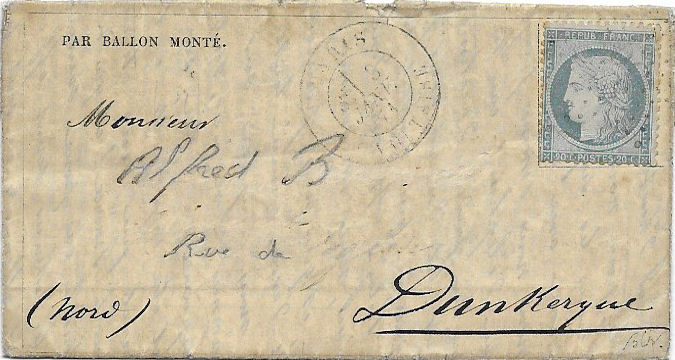 PAR BALLON MONTÉ.
REPUB. FRANC.
20 C. POSTES 20 C.
PARIS
Monsieur
Alfred B
Rue de
(Nord)
Dunkerque